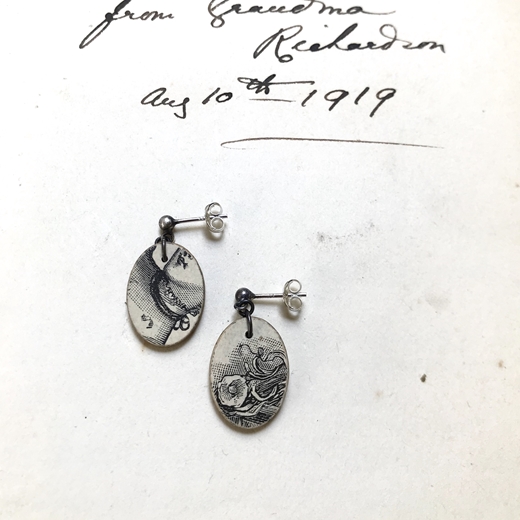 from Grandma
Richardson
Aug 10th 1919